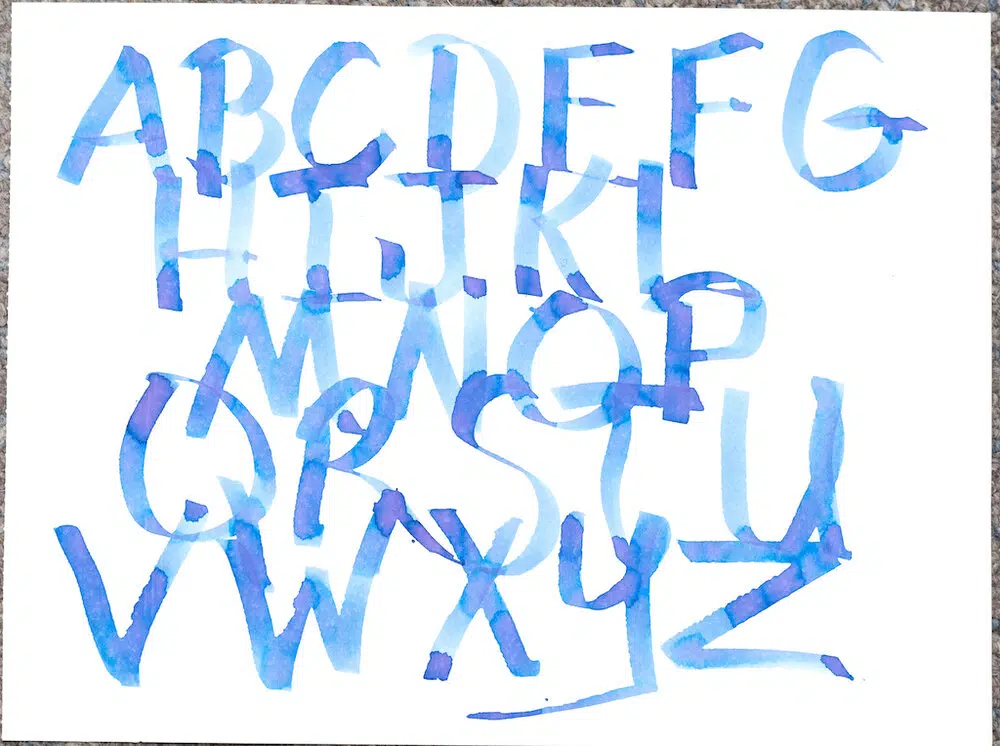 ABCDEFG
HIJKL
MNOP
QRSTU
VWXYZ